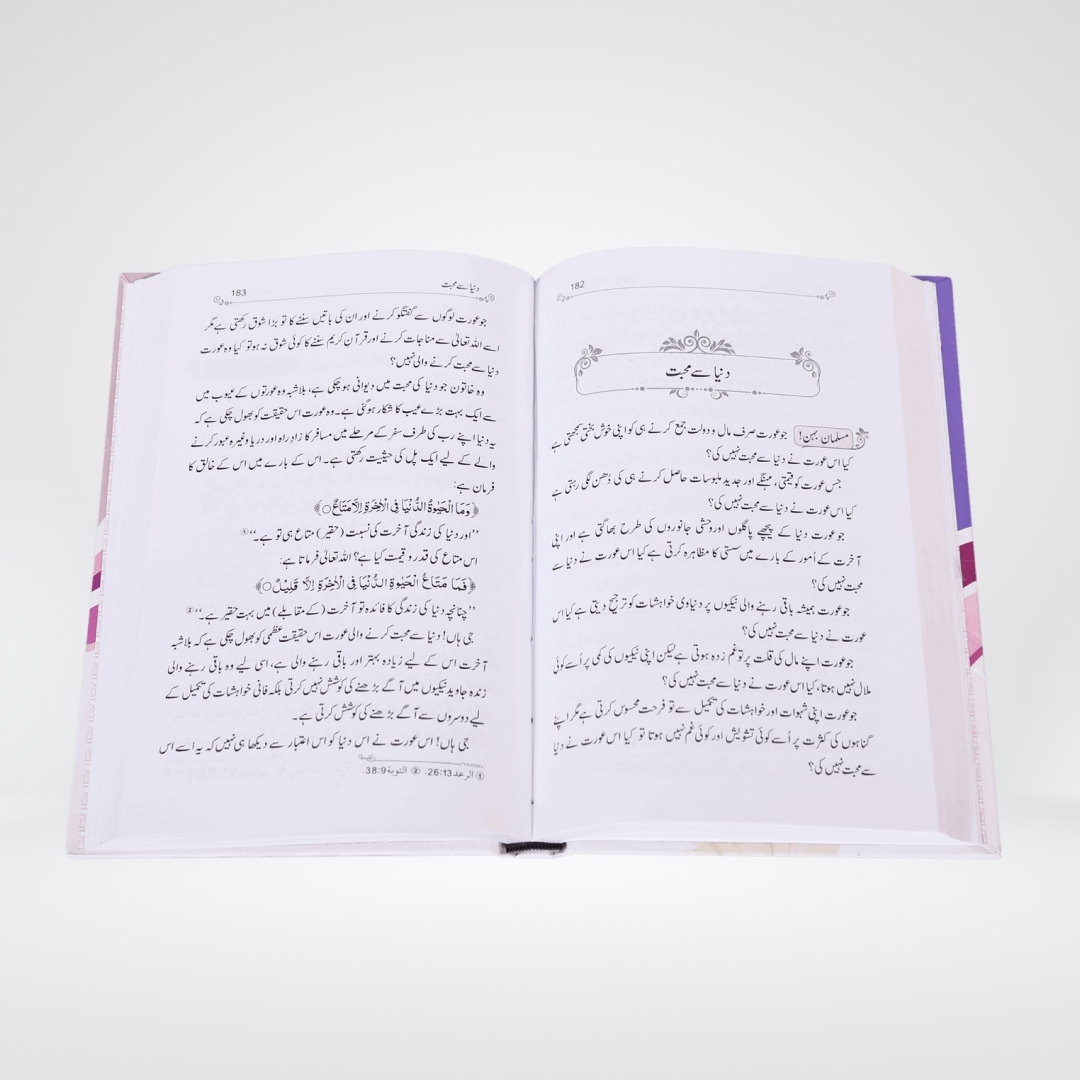 182
دنیا سے محبت
مسلمان بہن! جو عورت صرف مال و دولت جمع کرنے ہی کو اپنی خوش بختی سمجھتی ہے
کیا اس عورت نے دنیا سے محبت نہیں کی؟
جس عورت کو قیمتی، مہنگے اور جدید ملبوسات حاصل کرنے ہی کی دُھن لگی رہتی ہے
کیا اس عورت نے دنیا سے محبت نہیں کی؟
جو عورت دنیا کے پیچھے پاگلوں اور وحشی جانوروں کی طرح بھاگتی ہے اور اپنی
آخرت کے اُمور کے بارے میں سستی کا مظاہرہ کرتی ہے کیا اس عورت نے دنیا سے
محبت نہیں کی؟
جو عورت ہمیشہ باقی رہنے والی نیکیوں پر دنیاوی خواہشات کو ترجیح دیتی ہے کیا اس
عورت نے دنیا سے محبت نہیں کی؟
جو عورت اپنے مال کی قلت پر تو غم زدہ ہوتی ہے لیکن اپنی نیکیوں کی کمی پر اُسے کوئی
ملال نہیں ہوتا، کیا اس عورت نے دنیا سے محبت نہیں کی؟
جو عورت اپنی شہوات اور خواہشات کی تکمیل سے تو فرحت محسوس کرتی ہے مگر اپنے
گناہوں کی کثرت پر اُسے کوئی تشویش اور کوئی غم نہیں ہوتا تو کیا اس عورت نے دنیا
سے محبت نہیں کی؟
دنیا سے محبت 183
جو عورت لوگوں سے گفتگو کرنے اور ان کی باتیں سننے کا تو بڑا شوق رکھتی ہے مگر
اسے اللہ تعالیٰ سے مناجات کرنے اور قرآن کریم سننے کا کوئی شوق نہ ہو تو کیا وہ عورت
دنیا سے محبت کرنے والی نہیں؟
وہ خاتون جو دنیا کی محبت میں دیوانی ہو چکی ہے، بلاشبہ وہ عورتوں کے عیوب میں
سے ایک بہت بڑے عیب کا شکار ہوگئی ہے۔ وہ عورت اس حقیقت کو بھول چکی ہے کہ
یہ دنیا اپنے رب کی طرف سفر کے مرحلے میں مسافر کا زادِ راہ اور دریا وغیرہ عبور کرنے
والے کے لیے ایک پل کی حیثیت رکھتی ہے۔ اس کے بارے میں اس کے خالق کا
فرمان ہے:
﴿وَمَا الْحَيٰوةُ الدُّنْيَا فِي الْاٰخِرَةِ اِلَّا مَتَاعٌ ○﴾
”اور دنیا کی زندگی آخرت کی نسبت (حقیر) متاع ہی تو ہے۔“ ①
اس متاع کی قدر و قیمت کیا ہے؟ اللہ تعالیٰ فرماتا ہے:
﴿فَمَا مَتَاعُ الْحَيٰوةِ الدُّنْيَا فِي الْاٰخِرَةِ اِلَّا قَلِيْلٌ ○﴾
”چنانچہ دنیا کی زندگی کا فائدہ تو آخرت (کے مقابلے) میں بہت حقیر ہے۔“ ②
جی ہاں! دنیا سے محبت کرنے والی عورت اس حقیقت عظمیٰ کو بھول چکی ہے کہ بلاشبہ
آخرت اس کے لیے زیادہ بہتر اور باقی رہنے والی ہے، اسی لیے وہ باقی رہنے والی
زندہ جاوید نیکیوں میں آگے بڑھنے کی کوشش نہیں کرتی بلکہ فانی خواہشات کی تکمیل کے
لیے دوسروں سے آگے بڑھنے کی کوشش کرتی ہے۔
جی ہاں! اس عورت نے اس دنیا کو اس اعتبار سے دیکھا ہی نہیں کہ یہ اسے اس
① الرعد 26:13. ② التوبة 38:9.